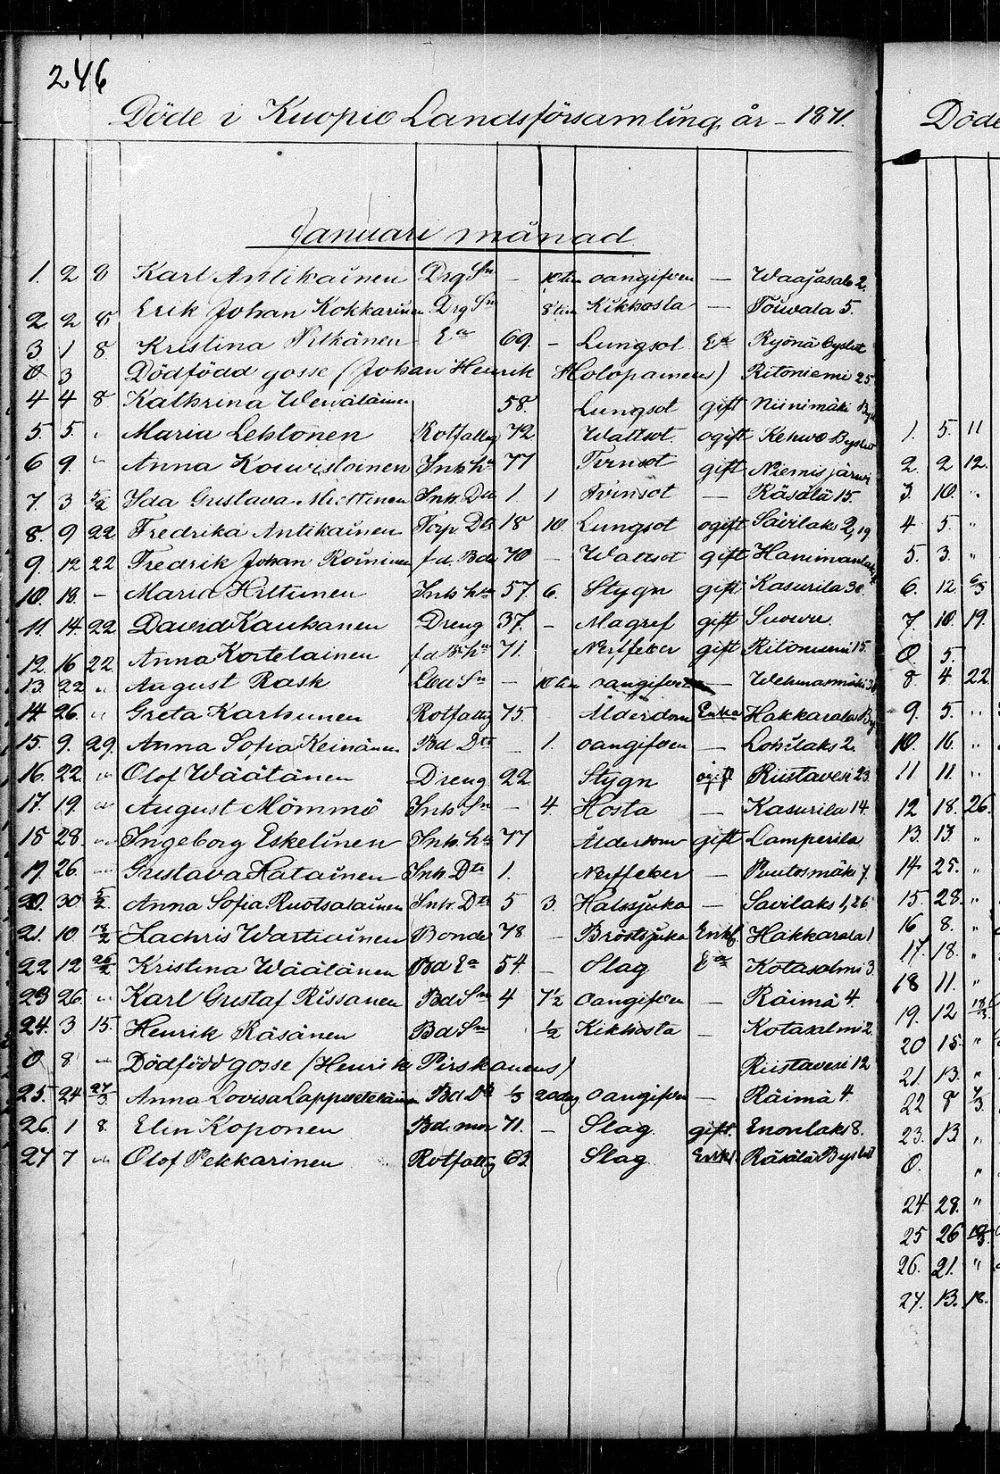 246
Döde i Kuopio Landsförsamling år - 1871.
Januari månad
1. 2 8 Karl Antikainen Drg Sn - 10 tim oangifven - Waajasalo 2.
2 2 8 Erik Johan Kokkarinen Drg Sn 8 tim Kikhosta - Toiwala 5.
3 1 8 Kristina Pitkänen Ea 69. - Lungsot Ea Ryönä Byslut
0 3 Dödfödd gosse (Johan Henrik Holopainens) Ritoniemi 25
4 4 8 Kathrina 58. Lungsot gift Niinimäki
5. 5. " Maria Lehtonen Rotfattig 72 Wattsot ogift Kehwo Byslut
6 9. " Anna Kouvistoinen Inh hu 77 Tvinsot gift Niemisjärvi
7. 3 5/2 Ida Gustava Miettinen Inh. Dtr 1. 1 Tvinsot - Räsälä 15.
8. 9 22 Fredrika Antikainen Torp. Dtr 18 10 Lungsot ogift Savilaks 2,19
9. 12 22 Fredrik Johan Roininen fd. Bde 70 - Wattsot gift
10. 18. - Maria Hiltunen Inh hu 57. 6. Stygn gift Kasurila 30.
11. 14. 22 David Kauhanen Dreng 37. - Magref gift
12. 16 22 Anna Kortelainen fd Bd hu 71. Nerffeber gift Ritoniemi 15.
13. 22 " August Rask Sn - 10 tim oangifven - Wehmasmäki
14. 26. " Greta Karhunen Rotfattig 75. Ålderdom Enka Hakkarala By
15. 9. 29. Anna Sofia Keinänen Bd Dtr - 1. oangifven - Lohilaks 2.
16. 22. " Olof Wäätänen Dreng 22. Stygn ogift Riistavesi 23
17. 19. " August Mömmö Inh Sn - 4. Hosta - Kasurila 14.
18 28. " Ingeborg Eskelinen Inh. hu 77 Ålderdom gift Lamperila
19. 26. " Gustava Hatainen Inh. Dtr 1. Nerffeber - Puutosmäki 7.
20. 30 5/2. Anna Sofia Ruotsalainen Inh. Dtr 5 3. Halssjuka - Savilaks 1,26
21. 10 18/2 Zachris Wartiainen Bonde 78. - Bröstsjuka Enkl Hakkarala 1
22 12 26/2 Kristina Wäätänen Bd Ea 54. - Slag Ea Kotasalmi 3.
23 26. " Karl Gustaf Rissanen Bd Sn 4 7 1/2 oangifven - Räimä 4.
24. 3 15. Henrik Räsänen Bd Sn 1/2 Kikhosta - Kotasalmi 2.
0 8 " Dödfödd gosse (Henrik Pirskanens) Riistavesi 12
25. 24 27/3 Anna Lovisa Bd Dtr 20 dag oangifven - Räimä 4.
26. 1 8. Elin Koponen Bd. mor 71. - Slag. gift. Enonlaks 8.
27 7 " Olof Pekkarinen Rotfattig 63. Slag Enkl. Räsälä Byslut
Döde
1. 5. 11
2. 2 12.
3. 10. "
4 5. "
5. 3. "
6. 12 6/3
7. 10. 19.
0. 5.
8 4 22
9. 5. "
10. 16. "
11 11. "
12 18. 26.
13. 13. "
14 25. "
15. 28. "
16 8. "
17. 18. "
18 11. "
19. 12
20 15. "
21. 13. "
22 8 1/3.
23. 13. "
0. "
24 28. "
25 26
26. 21. "
27. 13. 18.